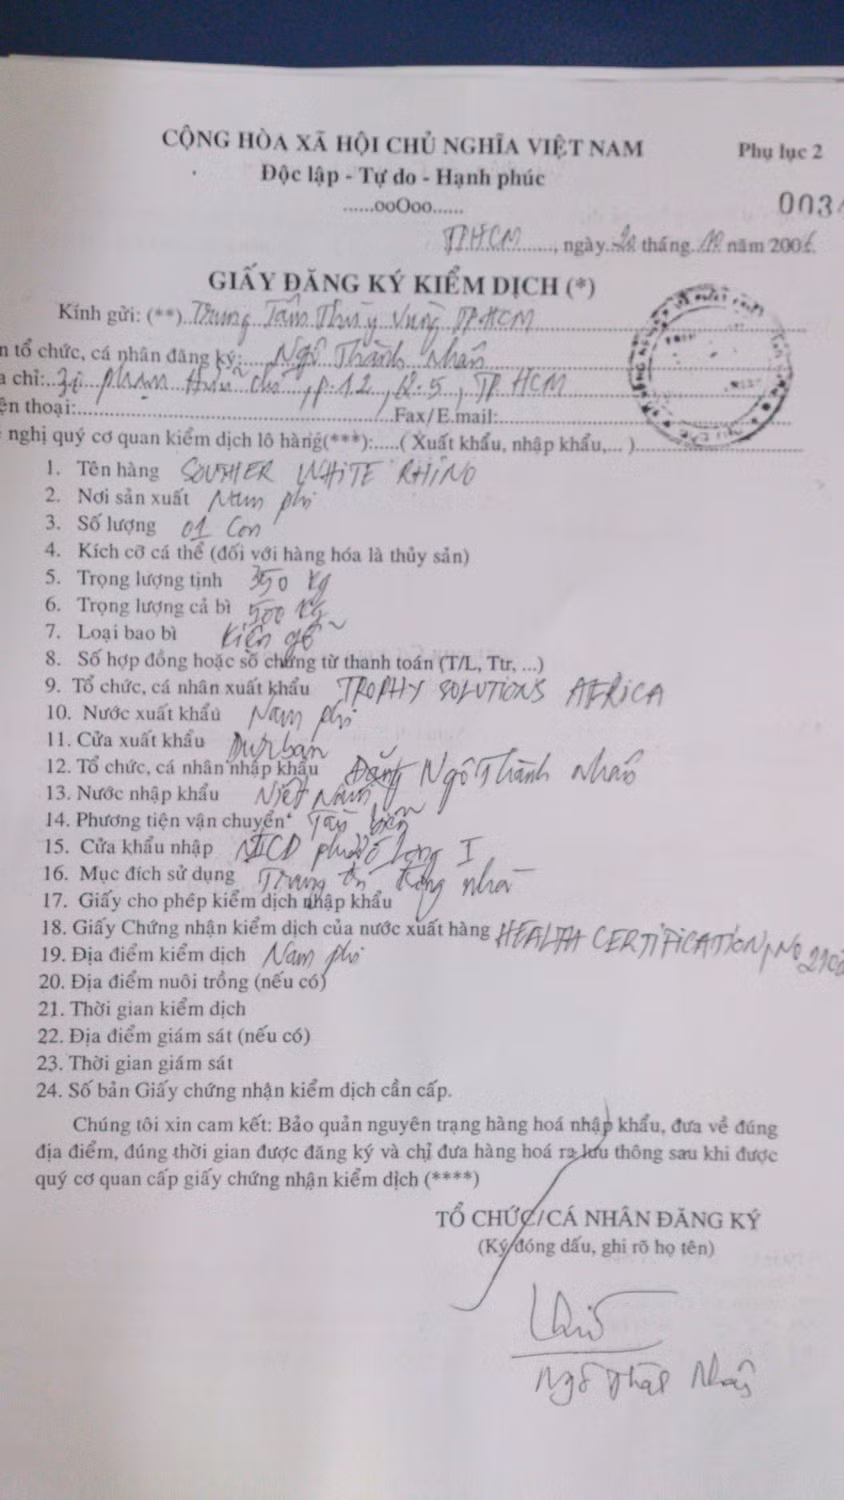 CỘNG HÒA XÃ HỘI CHỦ NGHĨA VIỆT NAM Phụ lục 2
Độc lập - Tự do - Hạnh phúc
......ooOoo...... 003
TP.HCM......, ngày.20.tháng.10.năm 2006.
GIẤY ĐĂNG KÝ KIỂM DỊCH (*)
Kính gửi: (**)..Trung Tâm Thú y Vùng TP.HCM
n tổ chức, cá nhân đăng ký:.....Ngô Thành Nhân
a chỉ:.. Phạm Hữu Chí, p.12, Q.5, TP HCM
ện thoại:............Fax/E.mail:............
nghị quý cơ quan kiểm dịch lô hàng(***):.....( Xuất khẩu, nhập khẩu,... )............
1. Tên hàng WHITE RHINO
2. Nơi sản xuất Nam phi
3. Số lượng 01 Con
4. Kích cỡ cá thể (đối với hàng hóa là thủy sản)
5. Trọng lượng tịnh 350 kg
6. Trọng lượng cả bì 500 kg
7. Loại bao bì Kiện gỗ
8. Số hợp đồng hoặc số chứng từ thanh toán (T/L, Ttr, ...)
9. Tổ chức, cá nhân xuất khẩu TROPHY SOLUTIONS AFRICA
10. Nước xuất khẩu Nam phi
11. Cửa xuất khẩu Durban
12. Tổ chức, cá nhân nhập khẩu Ngô Thành nhân
13. Nước nhập khẩu Việt Nam
14. Phương tiện vận chuyển Tàu biển
15. Cửa khẩu nhập ICD phước long I
16. Mục đích sử dụng Trang trí trong nhà
17. Giấy cho phép kiểm dịch nhập khẩu
18. Giấy Chứng nhận kiểm dịch của nước xuất hàng HEALTH CERTIFICATION, No
19. Địa điểm kiểm dịch Nam phi
20. Địa điểm nuôi trồng (nếu có)
21. Thời gian kiểm dịch
22. Địa điểm giám sát (nếu có)
23. Thời gian giám sát
24. Số bản Giấy chứng nhận kiểm dịch cần cấp.
Chúng tôi xin cam kết: Bảo quản nguyên trạng hàng hoá nhập khẩu, đưa về đúng
địa điểm, đúng thời gian được đăng ký và chỉ đưa hàng hoá ra lưu thông sau khi được
quý cơ quan cấp giấy chứng nhận kiểm dịch (****)
TỔ CHỨC/CÁ NHÂN ĐĂNG KÝ
(Ký đóng dấu, ghi rõ họ tên)
Ngô Thành Nhân